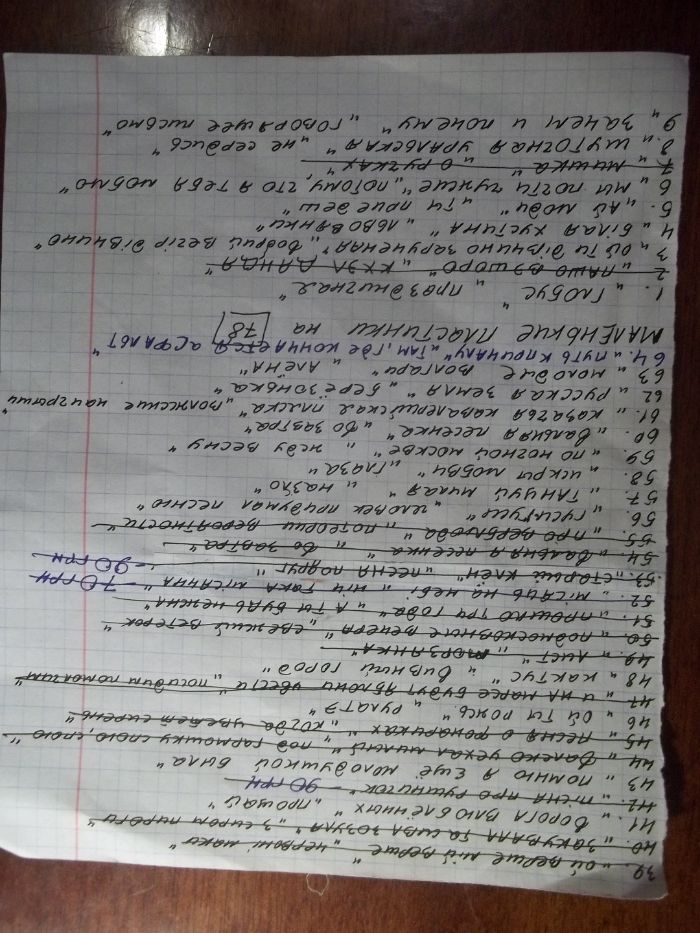 39. "ой верше мій верше" "червоні маки"
40. "закувала та сива зозуля" "з сиром пироги"
41. "дорога влюблённых" "прощай"
42. "пісня про рушничок" - 90 грн
43 "помню я ещё молодушкой была"
44 "далеко уехал милый" "под гармошку спою, спою"
45 "песня о фонариках" "когда цветет сирень"
46 "ой ти рожь" "рулатэ"
47. "и на марсе будут яблони цвести" "посидим помолчим"
48 "кактус" "дивний город"
49. "лист"
50. "подмосковные вечера" "свежий ветерок"
51. "прошло три года" "а ти будь нежна"
52. "місяць на небі" "ніч така місячна" - 70 грн
53. "старый клён" "песня подруг" - 90 грн
54. "дальня песенка" "до завтра"
55. "про верблюда" "потеории вероятности"
56 "гуси, гуси" "человек придумал песню"
57. "танцуй милая" "назло"
58. "искри любви" "глаза"
59. "по ночной москве" "жду весну"
60. "дальняя песенка" "до завтра"
61. "казачья кавалерийская пляска" "волжские наигрыши"
62 "русская земля" "берёзонька"
63 "молодие волгари" "алёна"
64. "путь к причалу" "там, где кончается асфальт"
маленькие пластинки на 78
1. "глобус" "праздничная"
2 "пашо вэшоро" "кхэл данда"
3 "ой ти дівчино заручена" "добрий вечір дівчино"
4 "біла хустина" "львовянки"
5. "ай люди" "ти приедеш"
6 "ми почти чужие" "потому, что я тебя люблю"
7. "мишка" "о ручках"
8. "шуточная уральская" "не сердись"
9 "зачем и почему" "говорящее письмо"